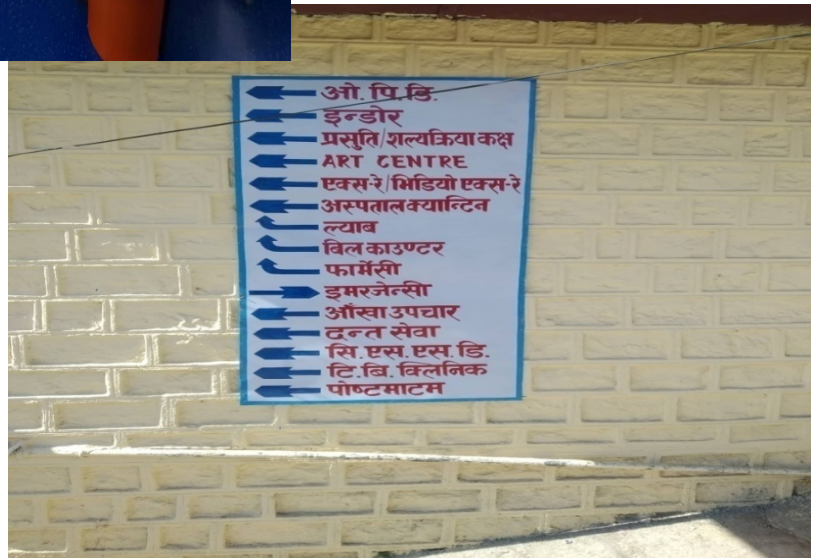 ओ. पि. डि.
इन्डोर
प्रसुति/शल्यक्रिया कक्ष
ART CENTRE
एक्स-रे/भिडियो एक्स-रे
अस्पताल क्यान्टिन
ल्याब
बिल काउण्टर
फार्मेसी
इमरजेन्सी
आँखा उपचार
दन्त सेवा
सि. एस. एस. डि.
टि. बि. क्लिनिक
पोष्टमाटम